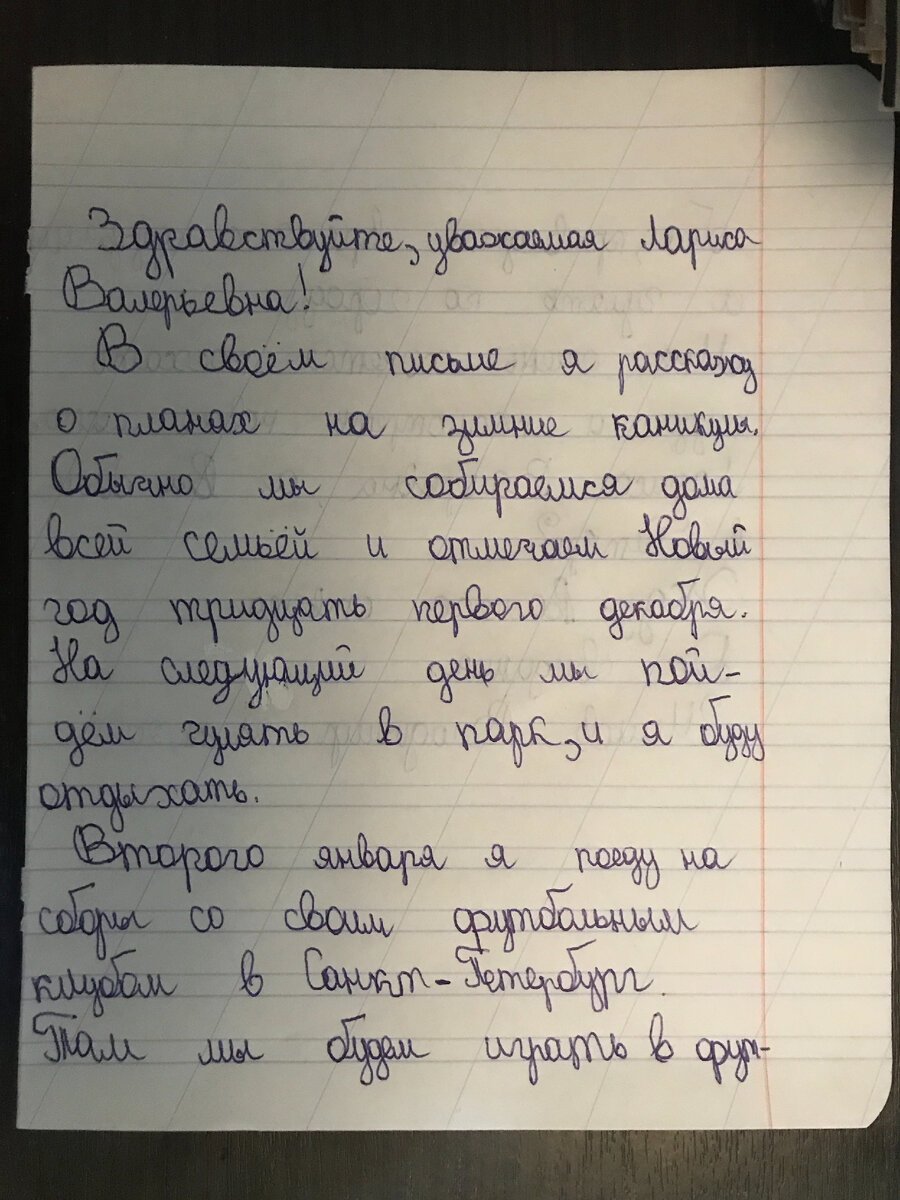 Здравствуйте, уважаемая Лариса
Валерьевна!
В своём письме я расскажу
о планах на зимние каникулы.
Обычно мы собираемся дома
всей семьёй и отмечаем Новый
год тридцать первого декабря.
На следующий день мы пой-
дём гулять в парк, и я буду
отдыхать.
Второго января я поеду на
сборы со своим футбольным
клубом в Санкт-Петербург.
Там мы будем играть в фут-